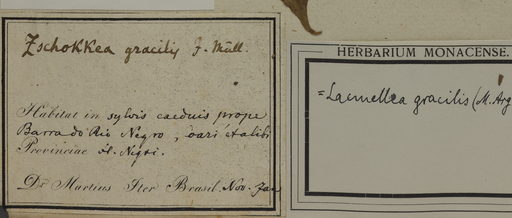 Zschokkea gracilis J. Müll.
Habitat in sylvis caeduis prope
Barra do Rio Negro, et alibi
Provinciae Rio Nigri.
Dr. Martius Iter Brasil. Nov.
HERBARIUM MONACENSE.
=Lacmellea gracilis (M. Arg